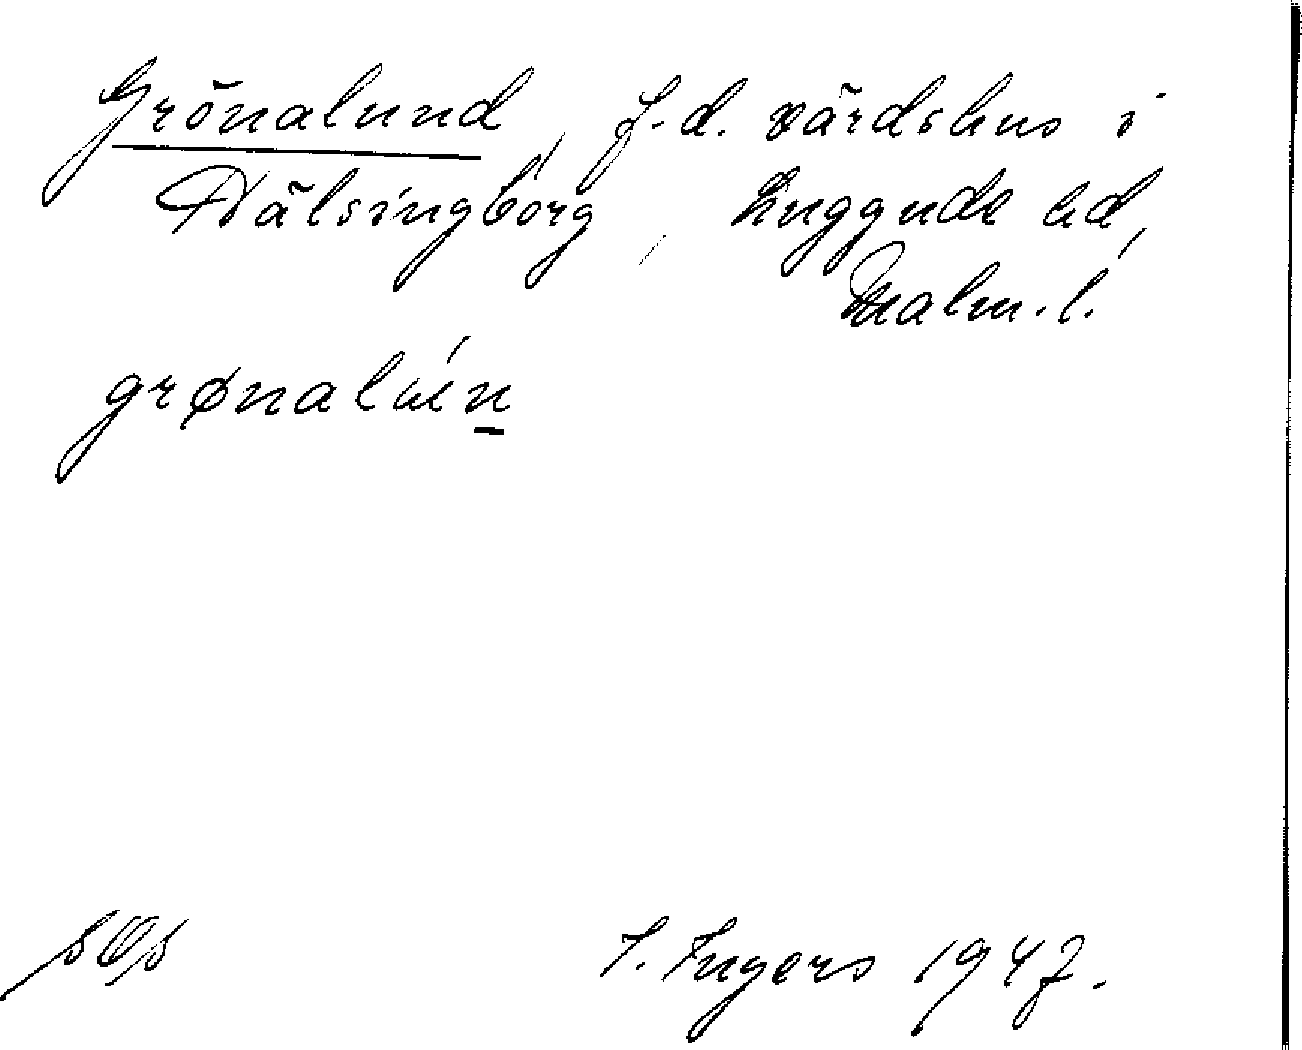 Grönalund, f.d. värdshus i
Hälsingborg, Luggude hd,
Malm.l.
grønalún
I. Ingers 1947.